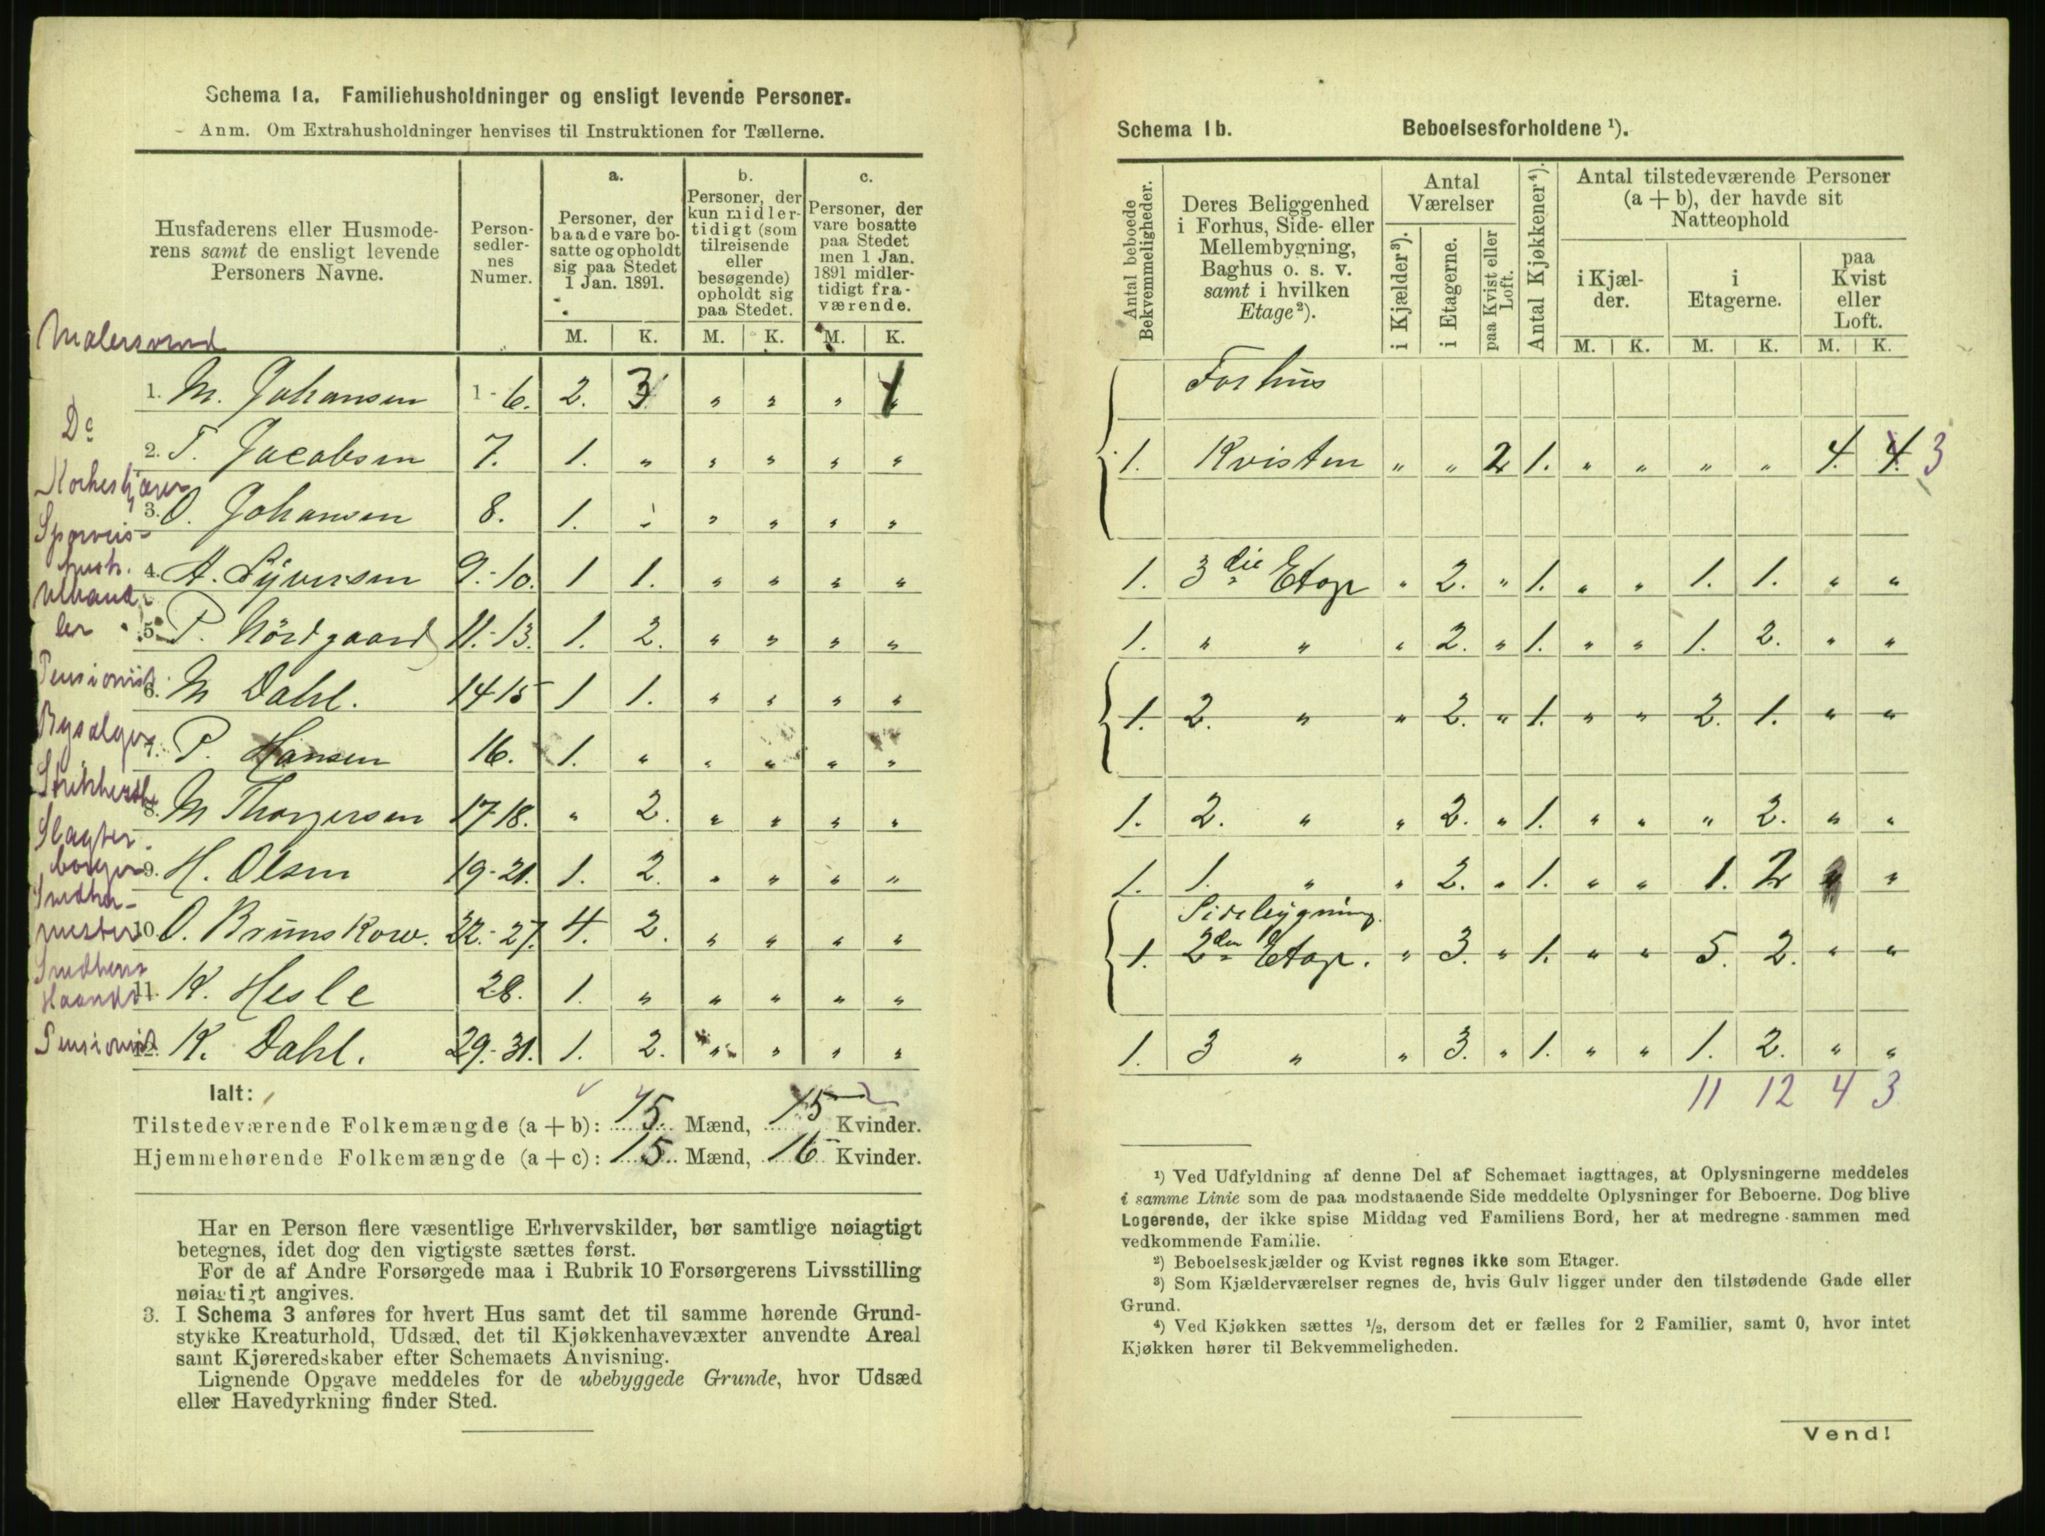 Schema 1a. Familiehusholdninger og ensligt levende Personer.
Anm. Om Extrahusholdninger henvises til Instruktionen for Tællerne.
Husfaderens eller Husmoderens samt de ensligt levende Personers Navne.
Personsedlernes Numer.
a.
Personer, der baade vare bosatte og opholdt sig paa Stedet 1 Jan. 1891.
b.
Personer, der kun midlertidigt (som tilreisende eller besøgende) opholdt sig paa Stedet.
c.
Personer, der vare bosatte paa Stedet men 1 Jan. 1891 midlertidigt fraværende.
M. K. M. K. M. K.
Malersvend
1. M. Johansen 1-6. 2. 3 „ „ „ 1
Do
2. T. Jacobsen 7. 1. „ „ „ „ „
3. O. Johansen 8. 1. „ „ „ „ „
Sporveis-
4. A. Syversen 9.-10. 1 1. „ „ „ „
Ulhand-
ler
5. P. Nordgaard 11.-13. 1. 2. „ „ „ „
Pensionist
6. M Dahl. 14-15 1 1. „ „ „ „
Bysælger
7. P. Hansen 16. 1. „ „ „ „ „
8. M Thorgersen 17-18. „ 2. „ „ „ „
Slagter-
borger
9. H. Olsen 19.-21. 1. 2. „ „ „ „
Snedker-
mester
10. O. Brunskow. 22.-27. 4. 2. „ „ „ „
11. K. Hesle 28. 1. „ „ „ „ „
Pensionist
12. K. Dahl. 29.-31. 1. 2. „ „ „ „
Ialt:
Tilstedeværende Folkemængde (a + b): 15. Mænd, 15 Kvinder.
Hjemmehørende Folkemængde (a + c): 15. Mænd, 16 Kvinder.
Har en Person flere væsentlige Erhvervskilder, bør samtlige nøiagtigt
betegnes, idet dog den vigtigste sættes først.
For de af Andre Forsørgede maa i Rubrik 10 Forsørgerens Livsstilling
nøiagtigt angives.
3. I Schema 3 anføres for hvert Hus samt det til samme hørende Grund-
stykke Kreaturhold, Udsæd, det til Kjøkkenhavevæxter anvendte Areal
samt Kjøreredskaber efter Schemaets Anvisning.
Lignende Opgave meddeles for de ubebyggede Grunde, hvor Udsæd
eller Havedyrkning finder Sted.
Schema 1b. Beboelsesforholdene ¹).
Antal beboede Bekvemmeligheder.
Deres Beliggenhed i Forhus, Side- eller Mellembygning, Baghus o. s. v. samt i hvilken Etage ²).
Antal Værelser
i Kjælder ³).
i Etagerne.
paa Kvist eller Loft.
Antal Kjøkkener ⁴).
Antal tilstedeværende Personer (a + b), der havde sit Natteophold
i Kjælder.
i Etagerne.
paa Kvist eller Loft.
M. K. M. K. M. K.
Forhus
1. Kvisten „ „ 2 1. „ „ „ „ 4. 4. 3
1. 3die Etage „ 2. „ 1. „ „ 1. 1. „ „
1. „ „ „ 2. „ 1. „ „ 1. 2. „ „
1. 2. „ „ 2. „ 1. „ „ 2. 1. „ „
1. 2. „ „ 2. „ 1. „ „ „ 2. „ „
1. 1. „ „ 2. „ 1. „ „ 1. 2 „ „
Sidebygning.
1. 2den Etage. „ 3. „ 1. „ „ 5. 2. „ „
1. 3 „ „ 3. „ 1. „ „ 1. 2. „ „
11 12 4 3
¹) Ved Udfyldning af denne Del af Schemaet iagttages, at Oplysningerne meddeles
i samme Linie som de paa modstaaende Side meddelte Oplysninger for Beboerne. Dog blive
Logerende, der ikke spise Middag ved Familiens Bord, her at medregne sammen med
vedkommende Familie.
²) Beboelseskjælder og Kvist regnes ikke som Etager.
³) Som Kjælderværelser regnes de, hvis Gulv ligger under den tilstødende Gade eller
Grund.
⁴) Ved Kjøkken sættes ½, dersom det er fælles for 2 Familier, samt 0, hvor intet
Kjøkken hører til Bekvemmeligheden.
Vend!